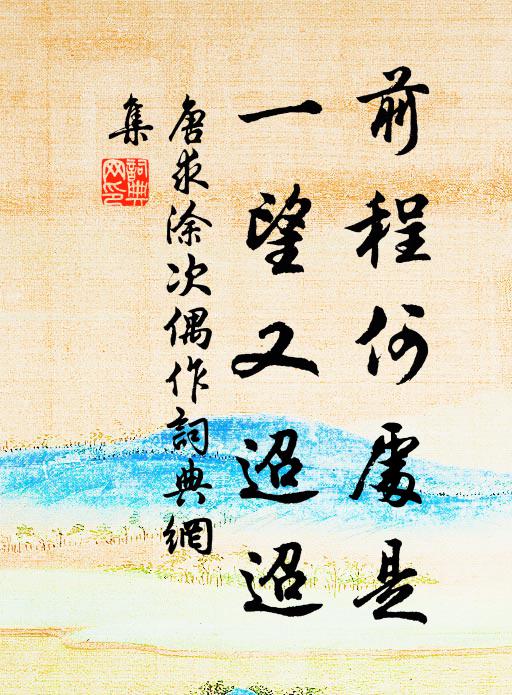 前程何處是
一望又迢迢
唐求涂次偶作詞典網
集
詞典網印